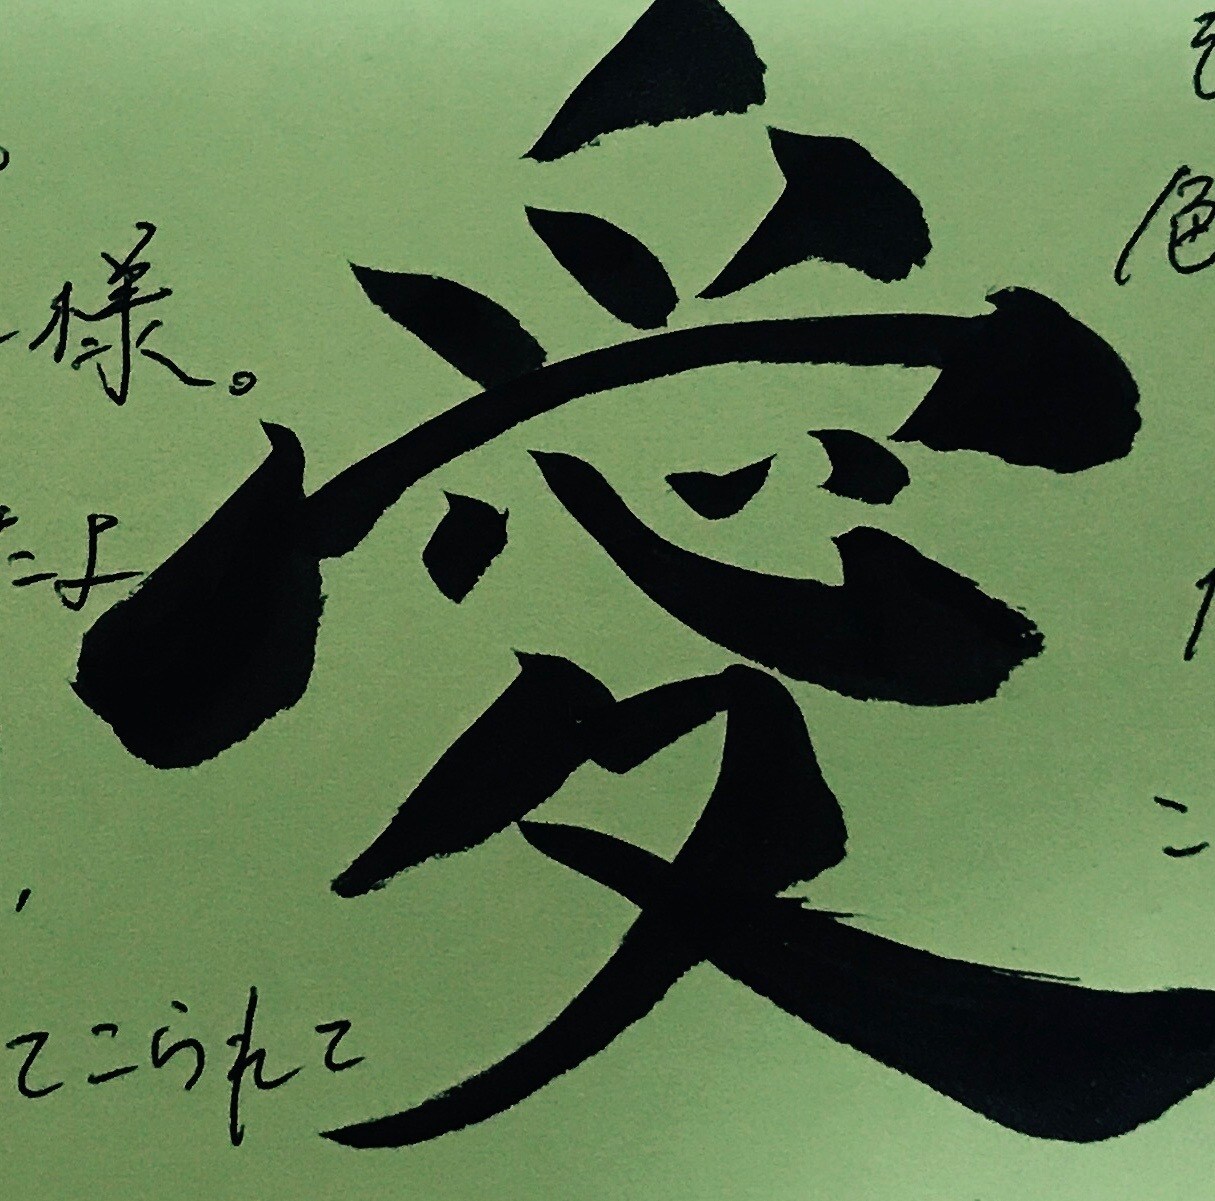 愛
様。
たよ
てこられて
色
こ